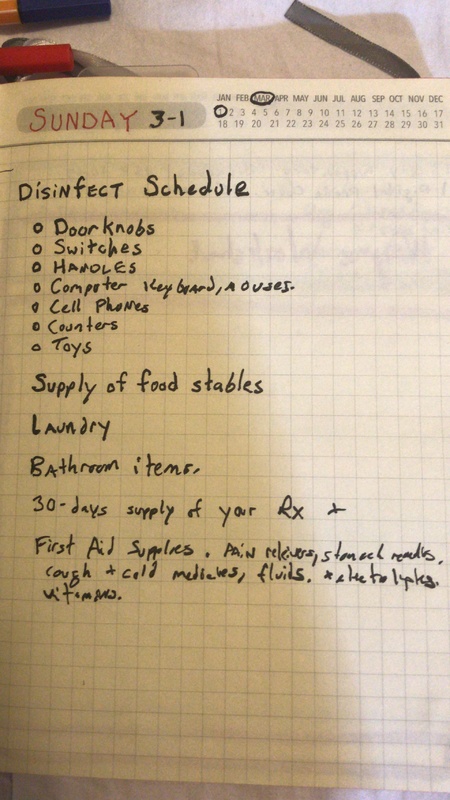 JAN FEB MAR APR MAY JUN JUL AUG SEP OCT NOV DEC
1 2 3 4 5 6 7 8 9 10 11 12 13 14 15 16 17
18 19 20 21 22 23 24 25 26 27 28 29 30 31
SUNDAY 3-1
DISINFECT Schedule
Doorknobs
Switches
HANDLES
Computer Keyboard, mouses.
Cell Phones
Counters
Toys
Supply of food stables
Laundry
Bathroom items.
30-days supply of your Rx +
First Aid Supplies. Pain relievers, stomach
cough + cold medicines, fluids. + electrolytes.
vitamins.